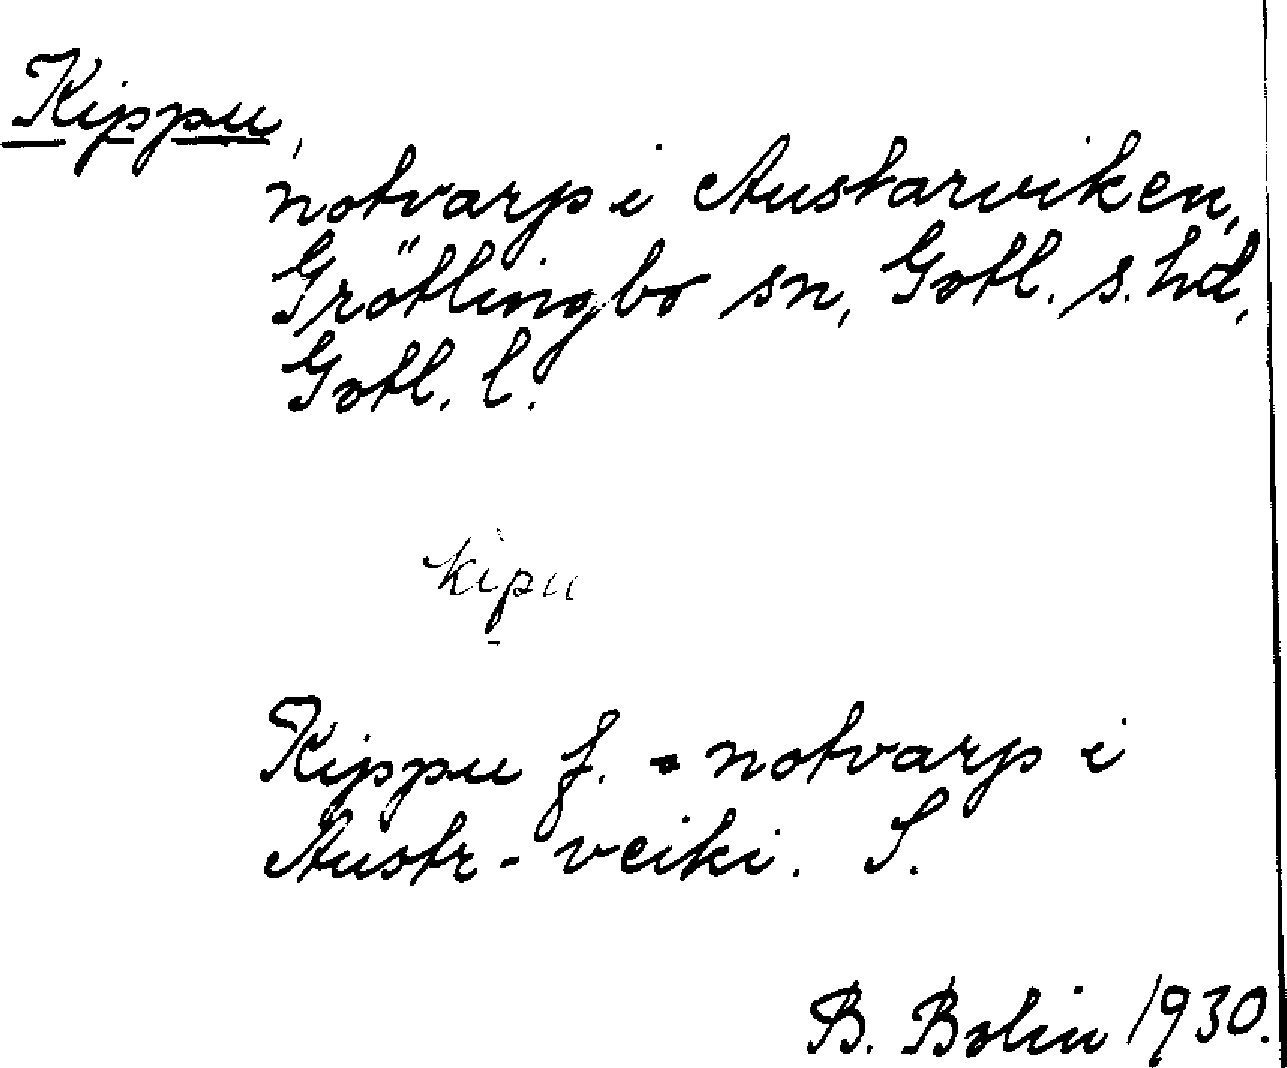 Kippu,
notvarp i Austarviken,
Grötlingbo sn, Gotl. s. hd,
Gotl. l.
kipu
Kippu f. = notvarp i
Austr-veiki. S.
B. Bolin 1930.